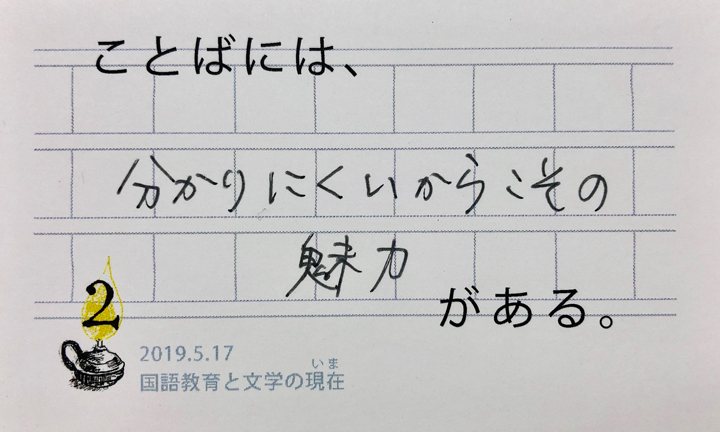 ことばには、
分かりにくいからこその
魅力
がある。
2
2019.5.17
いま
国語教育と文学の現在